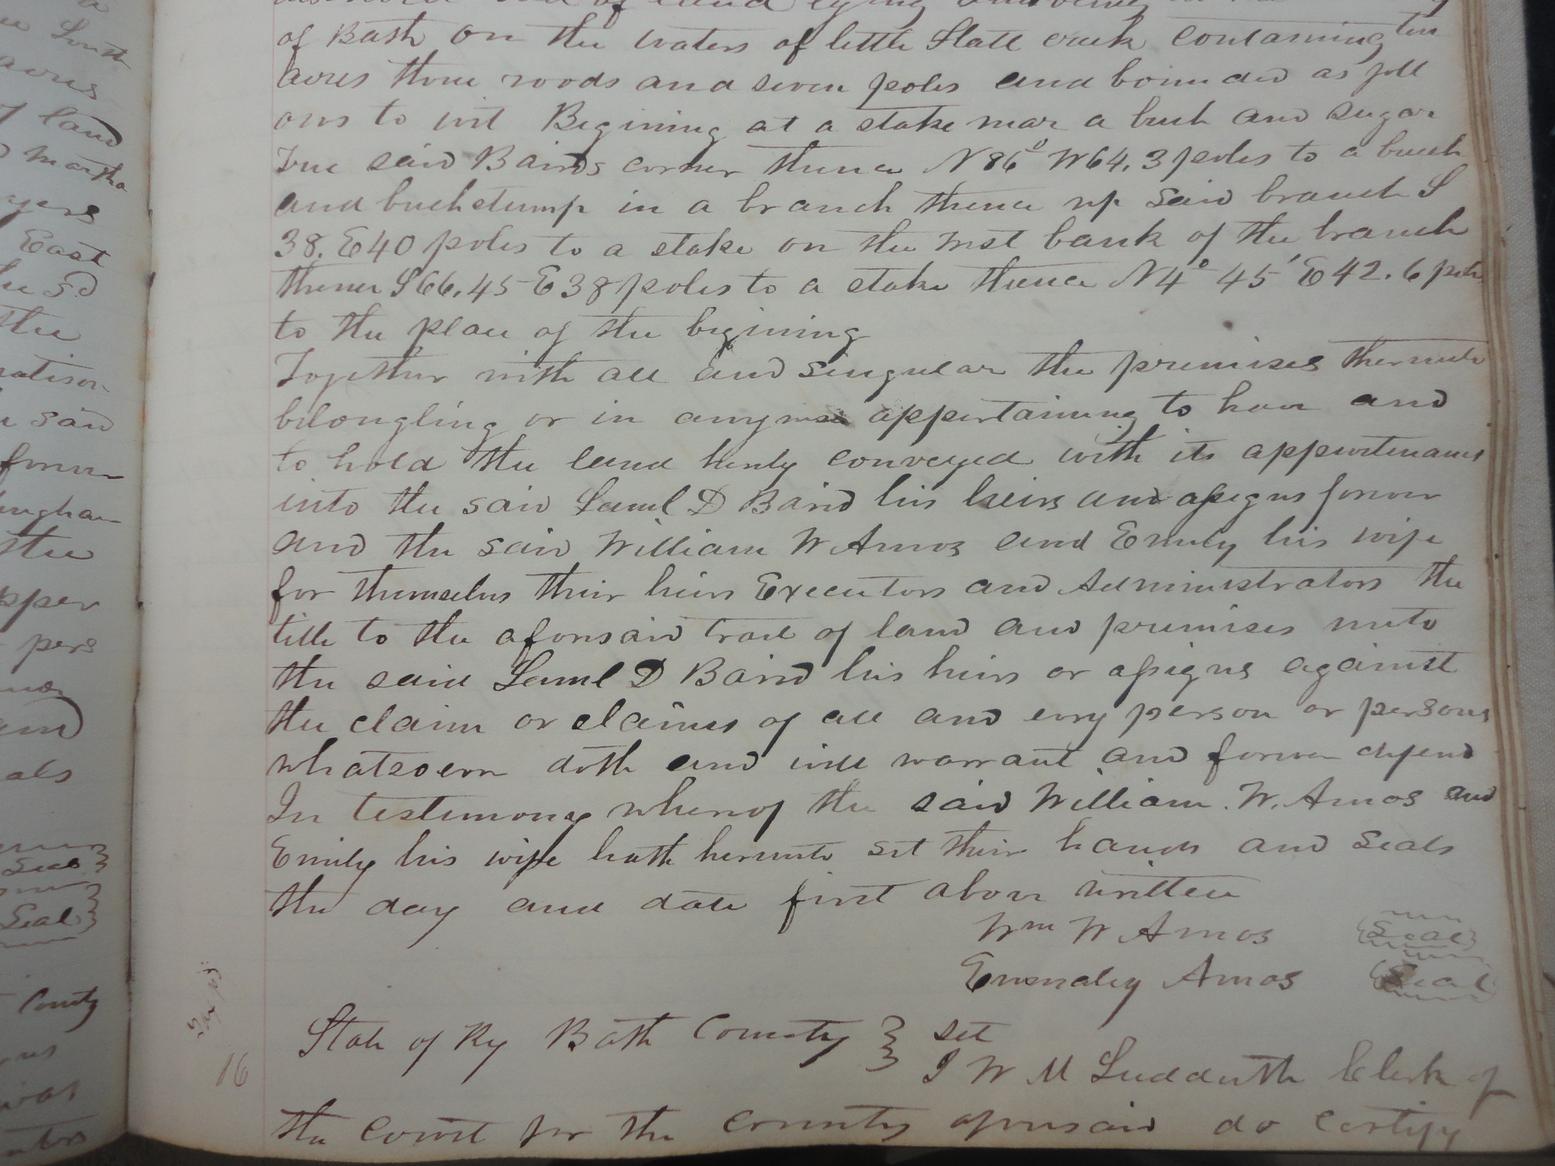 of land lying and being
of Bath on the waters of little Slate creek containing ten
acres three roods and seven poles and bounded as foll
ows to wit Begining at a stake near a buch and sugar
Tree said Bairds corner thence N 86° W 64.3 poles to a buech
and buch stump in a branch thence up said branch S
38. E 40 poles to a stake on the west bank of the branch
thence S 66.45 E 38 poles to a stake thence N 4° 45' E 42.6 poles
to the place of the begining
Together with all and singular the premises thereunto
belongling or in anywise appertaining to have and
to hold the land herby conveyed with its appertenances
into the said Saml D Baird his heirs and assigns forever
and the said William W Amos and Emily his wife
for themselves their heirs Executors and Administrators the
title to the aforesaid tract of land and premises unto
the said Saml D Baird his heirs or assigns against
the claim or claims of all and evry person or persons
whatsoever doth and will warrant and forever defend
In testimony whereof the said William. W. Amos and
Emily his wife hath hereunto set their hands and seals
the day and date first above written
Wm W Amos (Seal)
Amos (Seal)
State of Ky Bath County } Sct
I W M Sudduth Clerk of
the Court for the County aforesaid do certify
16
South
acres
of land
martha
East
the sd
the
said
forever
the
pers
als
Seal
Seal
County
was